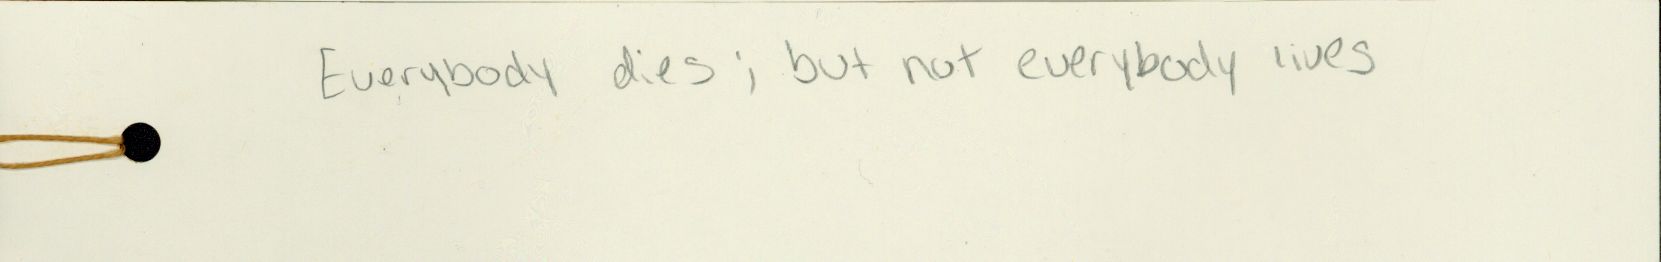 Everybody dies; but not everybody lives